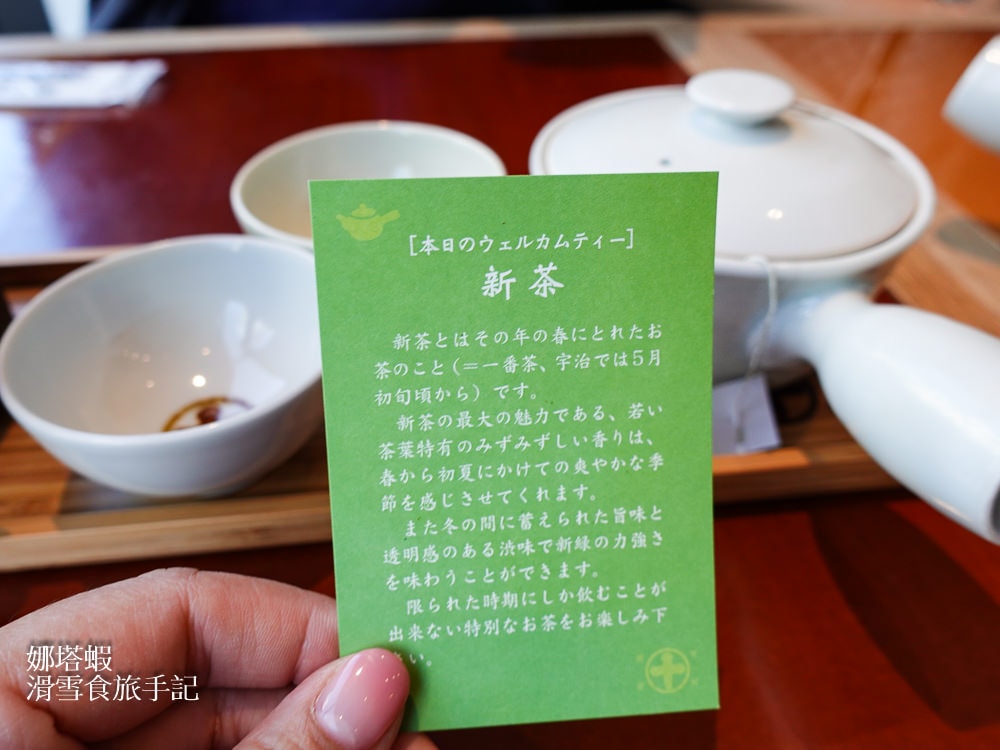 [本日のウェルカムティー]
新茶
新茶とはその年の春にとれたお
茶のこと(=一番茶、宇治では5月
初旬頃から)です。
新茶の最大の魅力である、若い
茶葉特有のみずみずしい香りは、
春から初夏にかけての爽やかな季
節を感じさせてくれます。
また冬の間に蓄えられた旨味と
透明感のある渋味で新緑の力強さ
を味わうことができます。
限られた時期にしか飲むことが
出来ない特別なお茶をお楽しみ下
い。
娜塔蝦
滑雪食旅手記